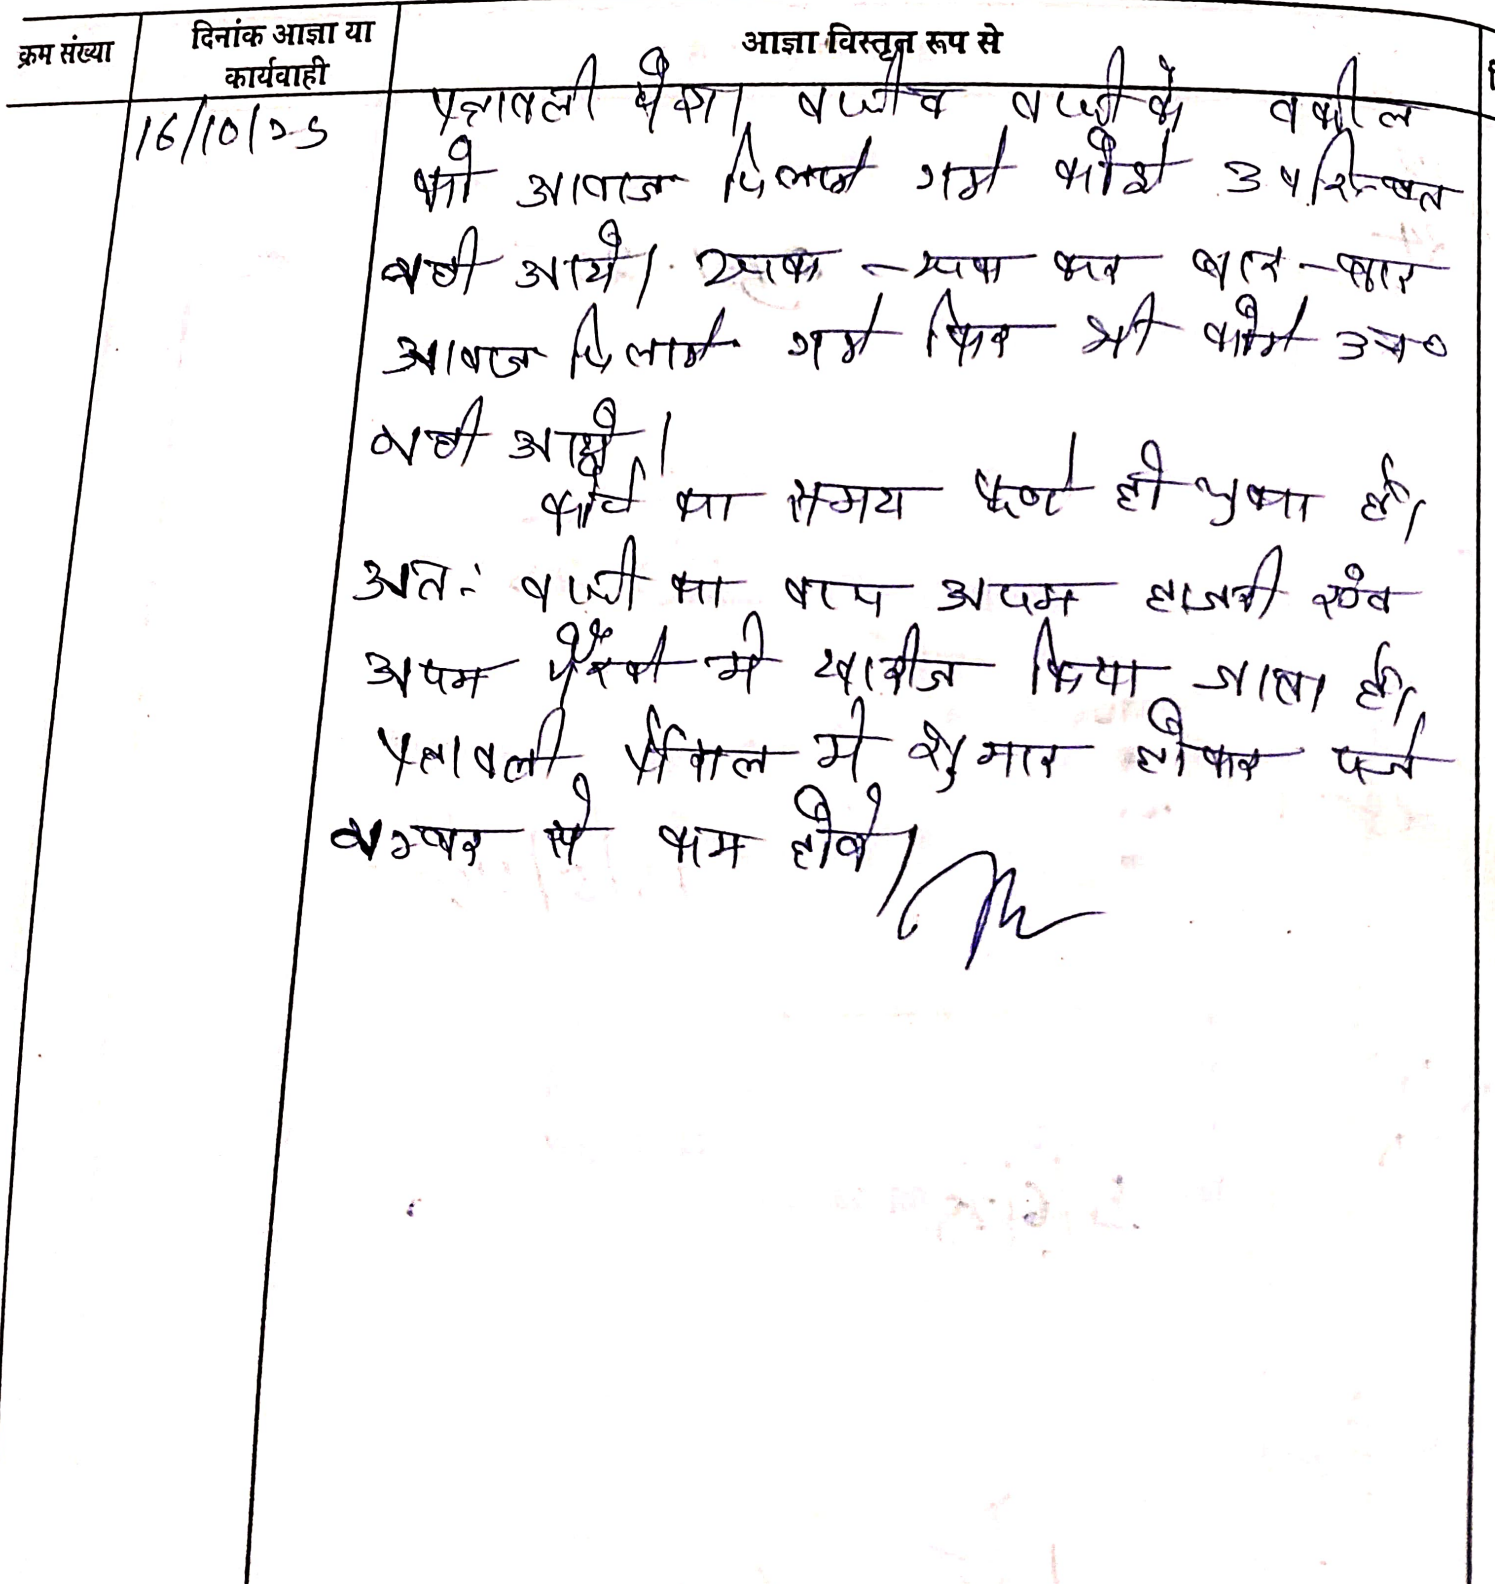 क्रम संख्या
दिनांक आज्ञा या
कार्यवाही
आज्ञा विस्तृत रूप से
16/10/25
पत्रावली पेश। वादी व वादी के वकील
को आवाज दिलाई गई कोई उपस्थित
नही आये। रूक-रूक कर बार-बार
आवाज दिलाई गई फिर भी कोई उप०
नही आये।
कोर्ट का समय पूर्ण हो चुका है।
अतः वादी का वाद अदम हाजरी एंव
अदम पैरवी मे खारीज किया जाता है।
पत्रावली फैसल मे शुमार होकर दर्ज
नम्बर से कम होवे।